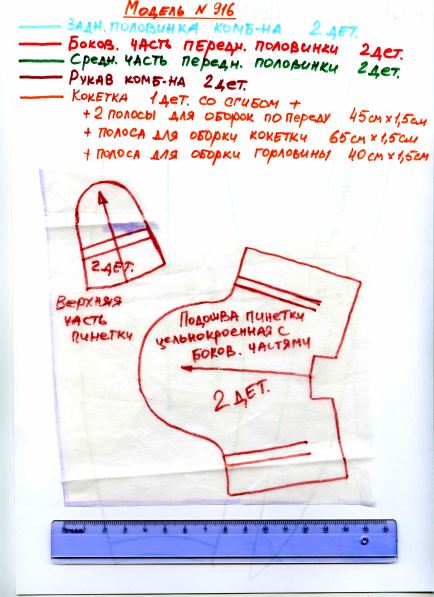 МОДЕЛЬ N 916
ЗАДН. ПОЛОВИНКА КОМБ-НА 2 ДЕТ.
БОКОВ. ЧАСТЬ ПЕРЕДН. ПОЛОВИНКИ 2 ДЕТ.
СРЕДН. ЧАСТЬ ПЕРЕДН. ПОЛОВИНКИ 2 ДЕТ.
РУКАВ КОМБ-НА 2 ДЕТ.
КОКЕТКА 1 ДЕТ. СО СГИБОМ +
+ 2 ПОЛОСЫ ДЛЯ ОБОРОК ПО ПЕРЕДУ 45 см × 1,5 см
+ ПОЛОСА ДЛЯ ОБОРКИ КОКЕТКИ 65 см × 1,5 см
+ ПОЛОСА ДЛЯ ОБОРКИ ГОРЛОВИНЫ 40 см × 1,5 см
2 ДЕТ.
ВЕРХНЯЯ
ЧАСТЬ
ПИНЕТКИ
ПОДОШВА ПИНЕТКИ
ЦЕЛЬНОКРОЕННАЯ С
БОКОВ. ЧАСТЯМИ
2 ДЕТ.